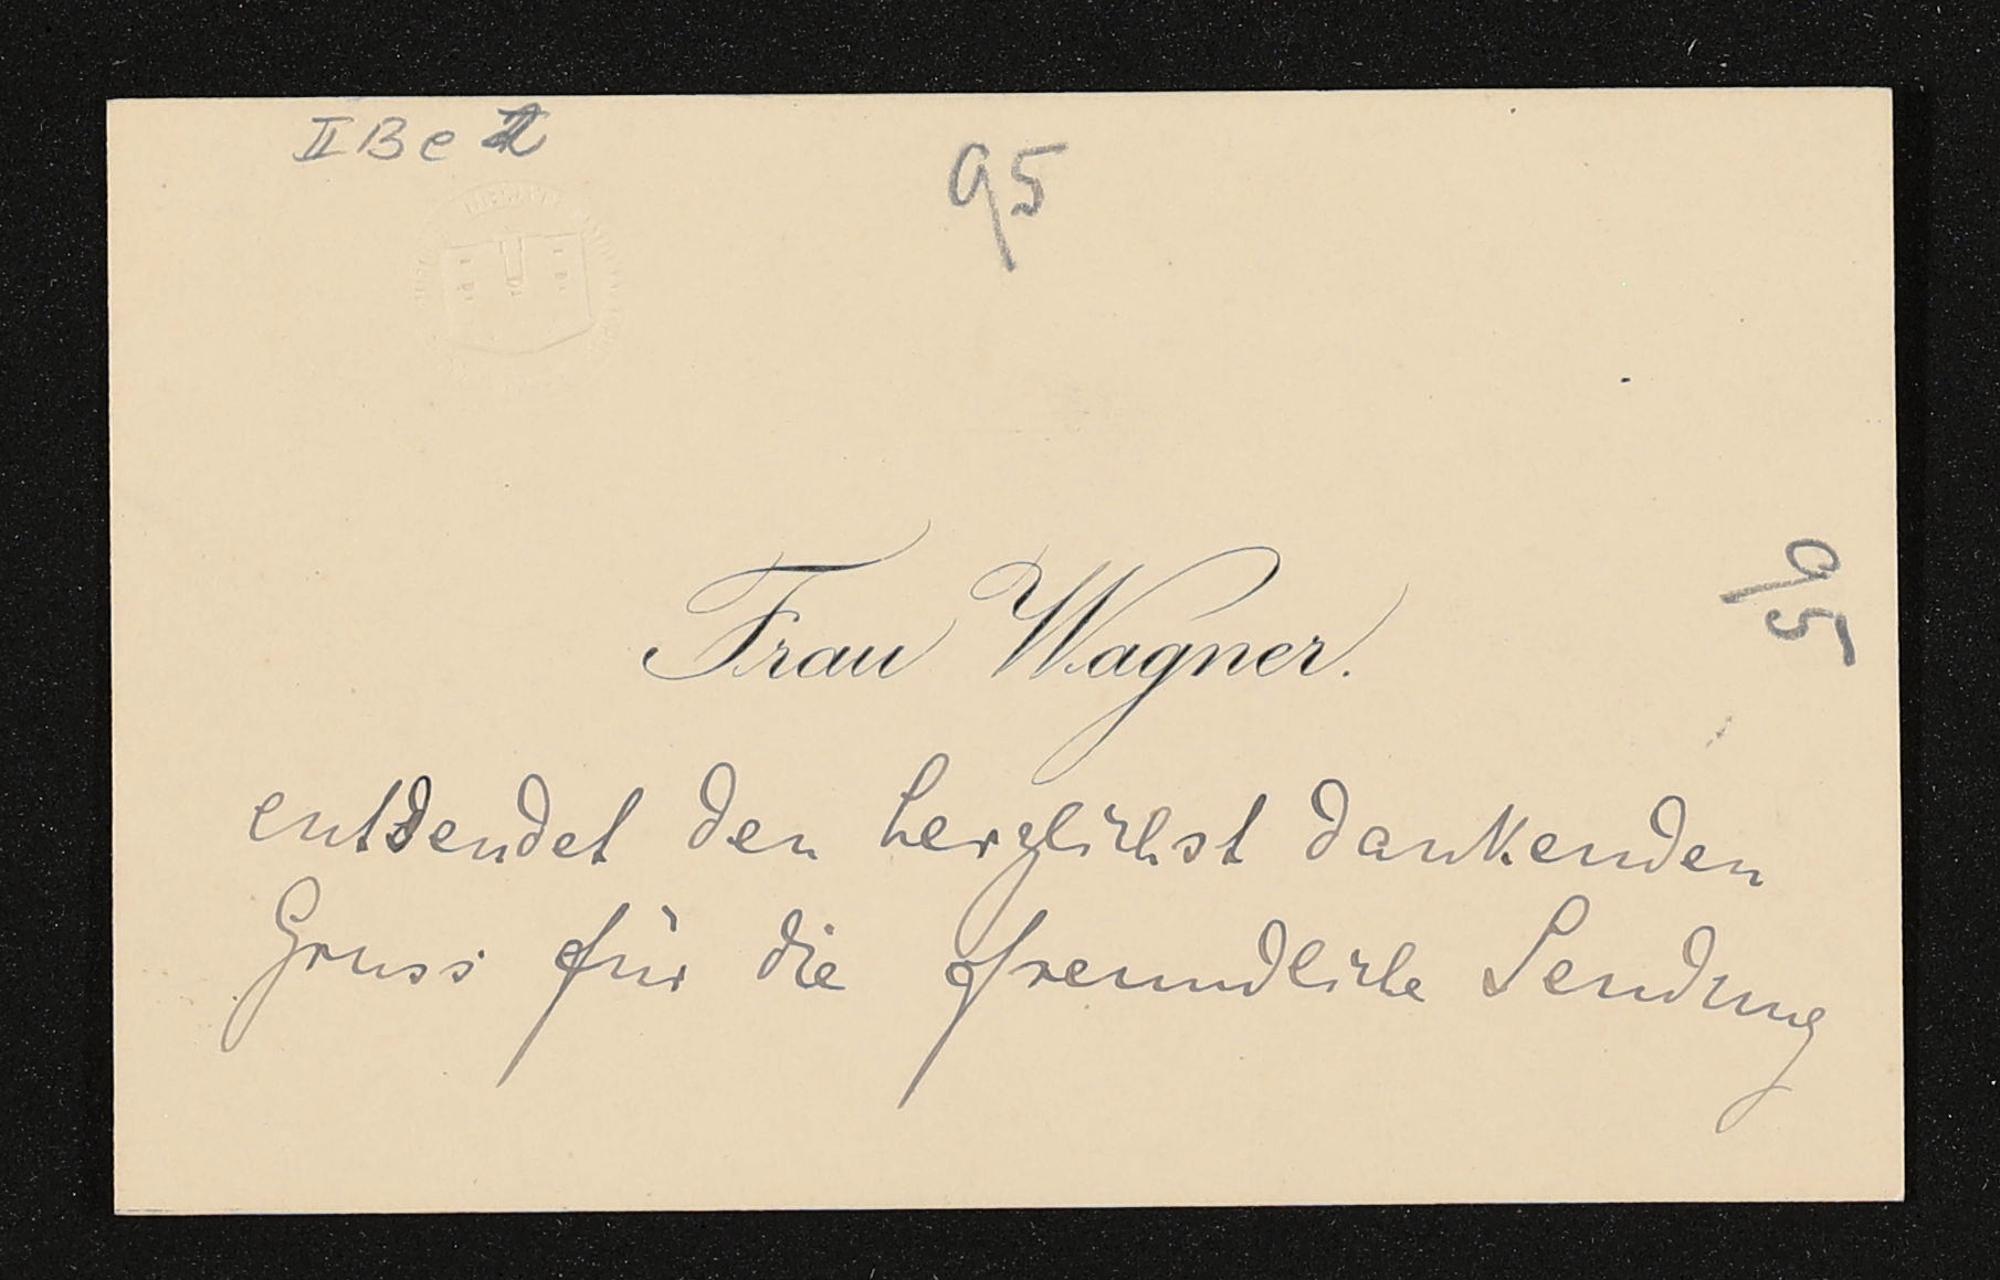 II Be
95
Frau Wagner.
95
entsendet den herzlichst dankenden
Gruss für die freundliche Sendung